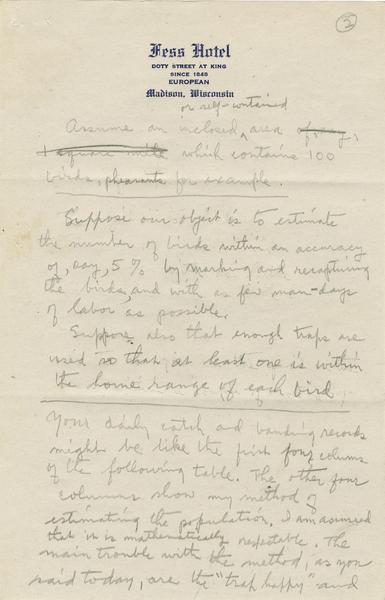 3
Fess Hotel
DOTY STREET AT KING
SINCE 1849
EUROPEAN
Madison, Wisconsin
or self-contained
Assume an inclosed area of, say,
1 square mile which contains 100
birds, pheasants for example.
Suppose our object is to estimate
the number of birds within an accuracy
of, say, 5% by marking and recapturing
the birds, and with as few man-days
of labor as possible.
Suppose also that enough traps are
used so that at least one is within
the home range of each bird.
Your daily catch and banding records
might be like the first four colums
of the following table. The other four
columns show my method of
estimating the population. I am assured
that it is mathematically respectable. The
main trouble with the method, as you
said today, are the "trap happy" and